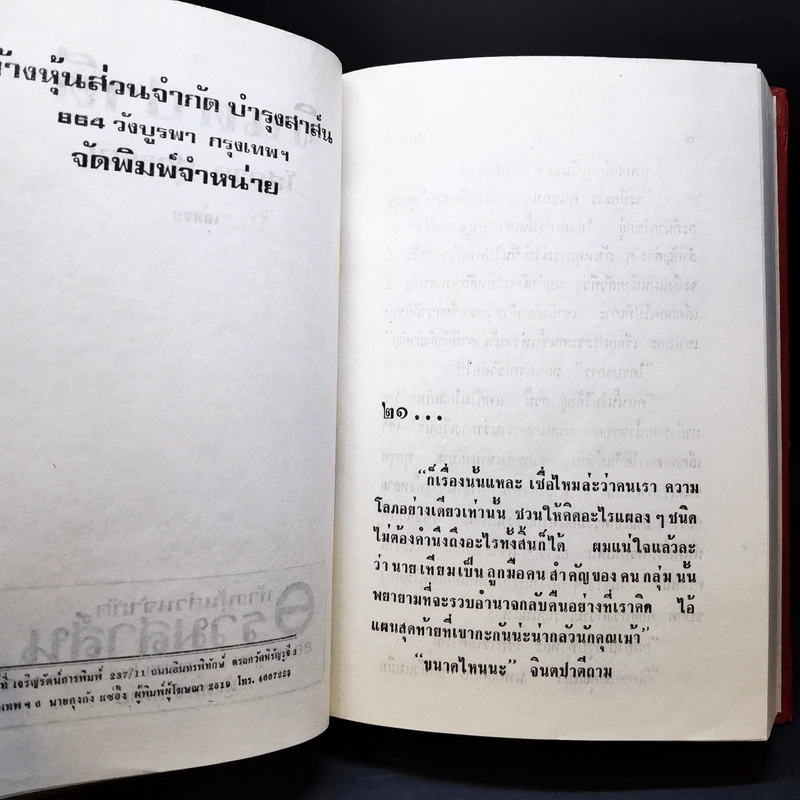 ห้างหุ้นส่วนจำกัด บำรุงสาส์น
864 วังบูรพา กรุงเทพฯ
จัดพิมพ์จำหน่าย
ที่ เจริญรัตน์การพิมพ์ 237/11 ถนนอินทรพิทักษ์ ตรอกวัดหิรัญรูจี
เทพฯ 6 นายคุงกัง แซ่อึ้ง ผู้พิมพ์ผู้โฆษณา 2519 โทร. 4667223
๒๑...
“ก็เรื่องนั้นแหละ เชื่อไหมล่ะว่าคนเรา ความ
โลภอย่างเดียวเท่านั้น ชวนให้คิดอะไรแผลง ๆ ชนิด
ไม่ต้องคำนึงถึงอะไรทั้งสิ้นก็ได้ ผมแน่ใจแล้วละ
ว่านายเทียมเป็นลูกมือคนสำคัญของคนกลุ่มนั้น
พยายามที่จะรวบอำนาจกลับคืนอย่างที่เราคิด ไอ้
แผนสุดท้ายที่เขากะกันน่ะน่ากลัวนักคุณเม้า”
“ขนาดไหนนะ” จินตปาตีถาม